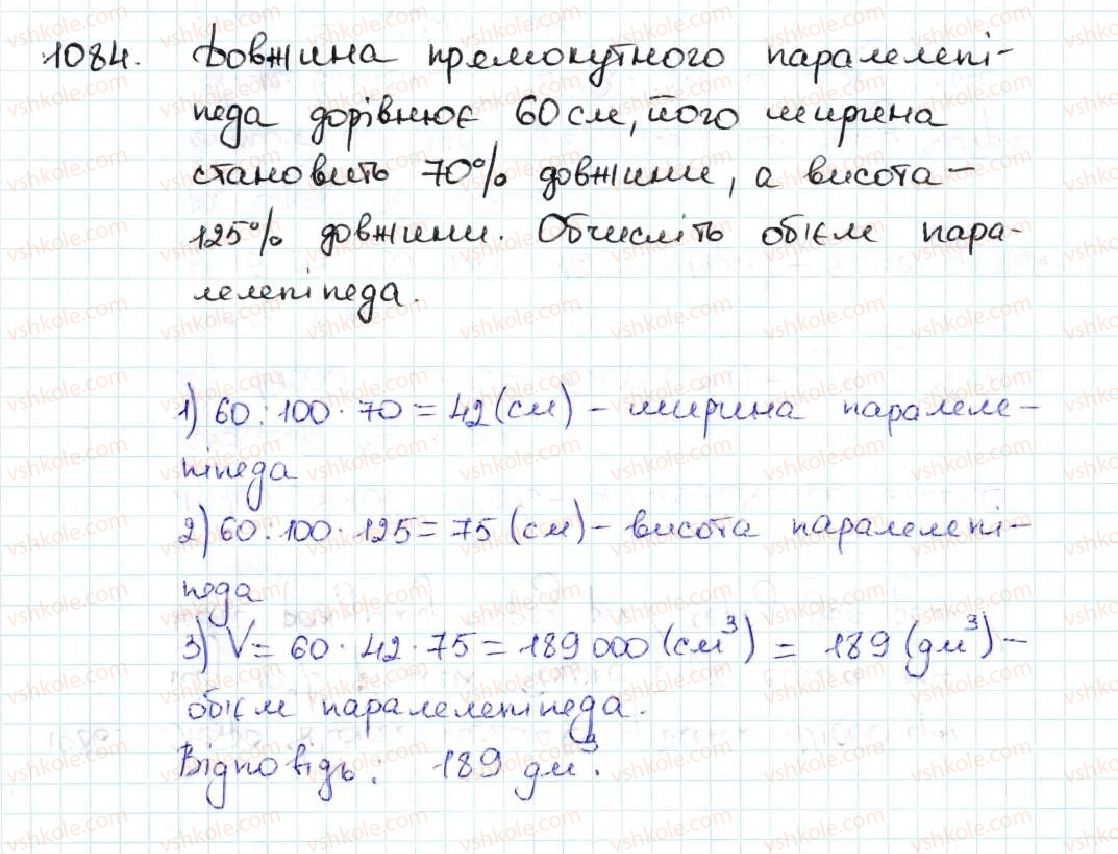 1084. Довжина прямокутного паралелепі-
педа дорівнює 60 см, його ширина
становить 70% довжини, а висота -
125% довжини. Обчисліть обієм пара-
лелепіпеда.
1) 60 : 100 · 70 = 42 (см) - ширина паралеле-
піпеда
2) 60 : 100 · 125 = 75 (см) - висота паралелепі-
педа
3) V = 60 · 42 · 75 = 189 000 (см³) = 189 (дм³) -
обієм паралелепіпеда.
Відповідь: 189 дм³.